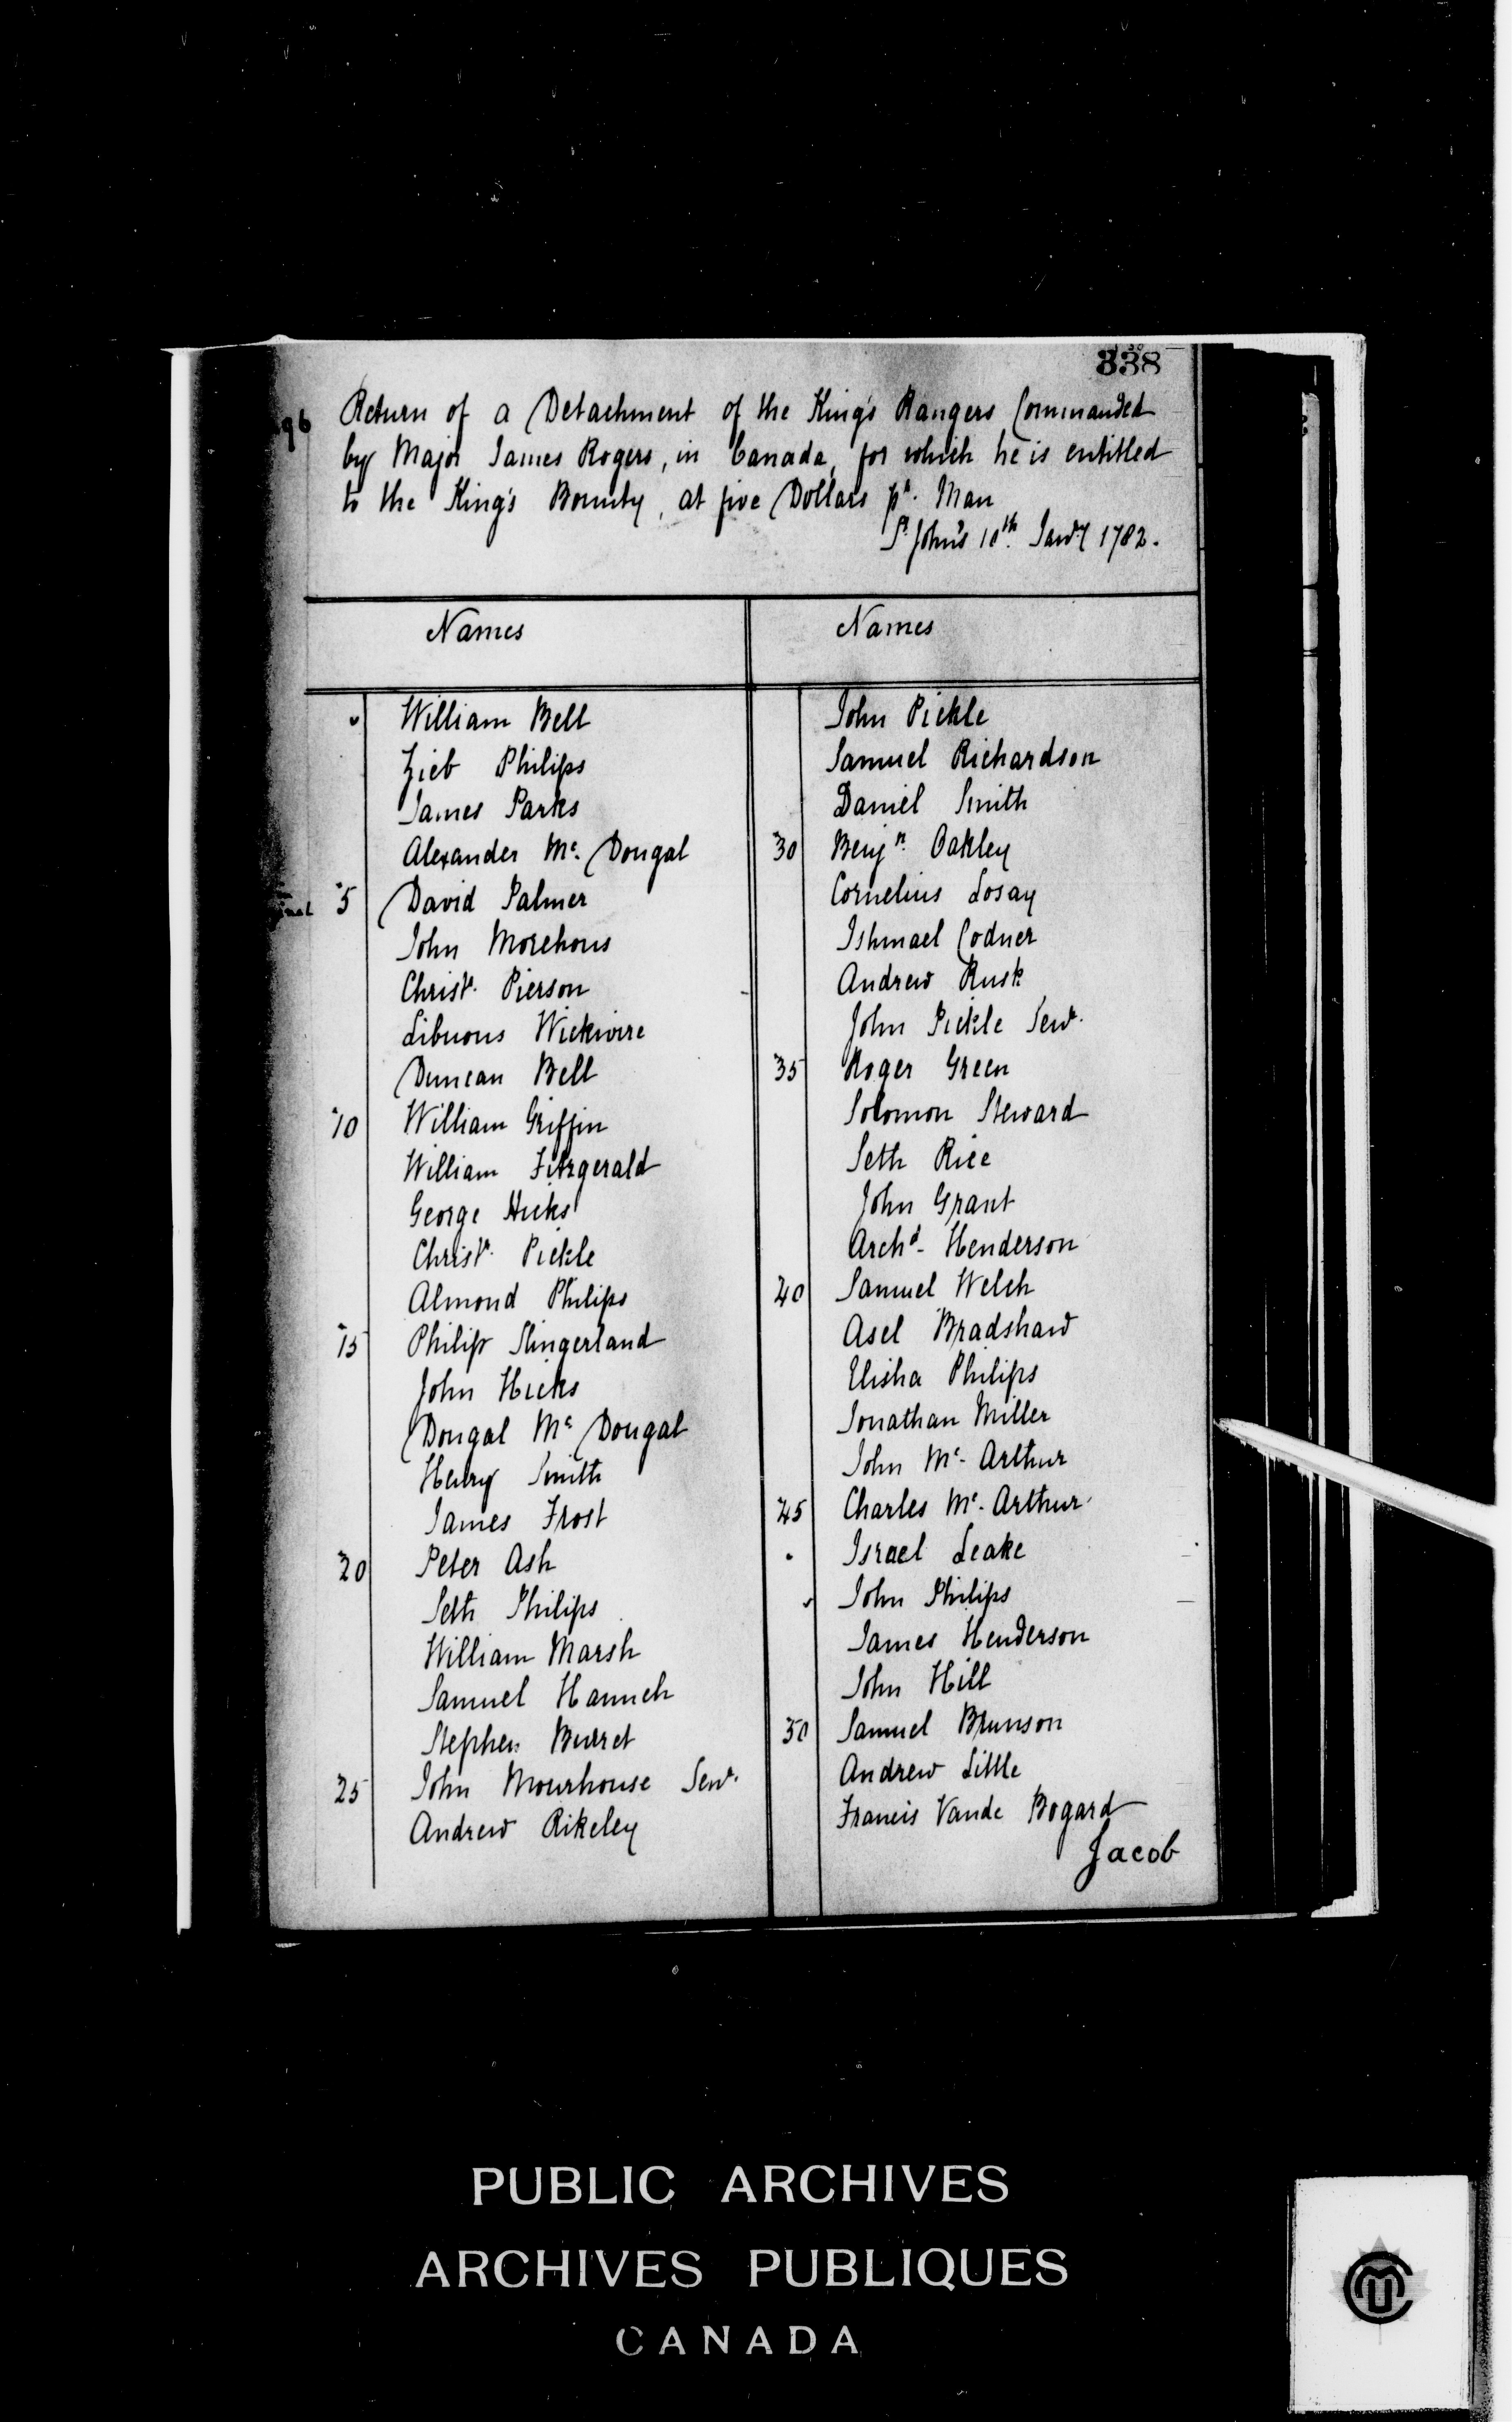 338
96
Return of a Detachment of the King's Rangers Commanded
by Major James Rogers, in Canada, for which he is entitled
to the King's Bounty, at five Dollars pr. Man
St. John's 10th. Janry 1782.
Names
William Bell
Zieb Philips
James Parks
Alexander Mc. Dougal
5 David Palmer
John Morehous
Christr. Pierson
Libuous Wickwire
Duncan Bell
10 William Griffin
William Fitzgerald
George Hicks
Christr. Pickle
Almond Philips
15 Philip Slingerland
John Hicks
Dougal Mc Dougal
Henry Smith
James Frost
20 Peter Ash
Seth Philips
William Marsh
Samuel Hannch
Stephen Burret
25 John Mourhouse Senr.
Andrew Rikeley
Names
John Pickle
Samuel Richardson
Daniel Smith
30 Benjn. Oakley
Cornelius Losay
Ishmael Codner
Andrew Rusk
John Pickle Senr.
35 Roger Green
Solomon Steward
Seth Rice
John Grant
Archd. Henderson
40 Samuel Welch
Asel Bradshaw
Elisha Philips
Jonathan Miller
John Mc. Arthur
45 Charles Mc. Arthur
Israel Leake
John Philips
James Henderson
John Hill
50 Samuel Brunson
Andrew Little
Francis Vande Bogard
Jacob
PUBLIC ARCHIVES
ARCHIVES PUBLIQUES
CANADA